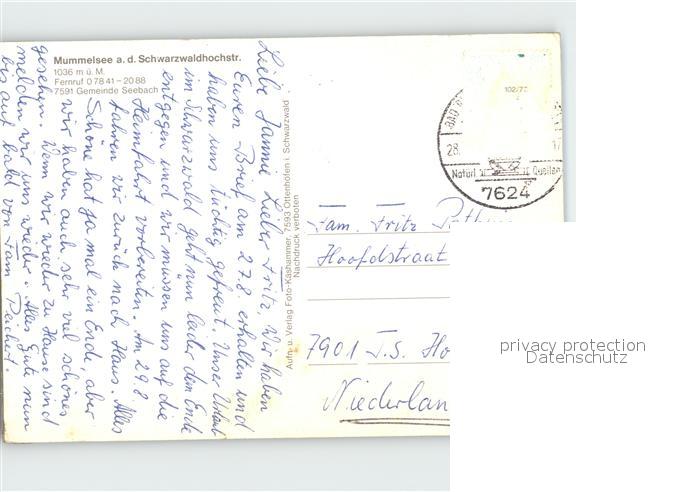 Mummelsee a. d. Schwarzwaldhochstr.
1036 m ü. M.
Fernruf 0 78 41 – 20 88
7591 Gemeinde Seebach
Liebe Jannie Lieber Fritz, Wir haben
Euren Brief am 27.8 erhalten und
haben uns tüchtig gefreut. Unser Urlaub
im Schwarzwald geht nun leider dem Ende
entgegen und wir müssen uns auf die
Heimfahrt vorbereiten. Am 29.8
fahren wir zurück nach Haus. Alles
Schöne hat ja mal ein Ende, aber
wir haben auch sehr viel schönes
gesehen. Wenn wir wieder zu Hause sind
melden wir uns wieder. Alles Gute nun
bis auf bald von Fam
Aufn. u. Verlag Foto-Kashammer, 7593 Ottenhöfen i. Schwarzwald
Nachdruck verboten
102/7
BAD
28.
Natürl
Quellen
7624
Fam. Fritz
Hoofdstraat
7901 T.S. Ho
Niederlan
privacy protection
Datenschutz